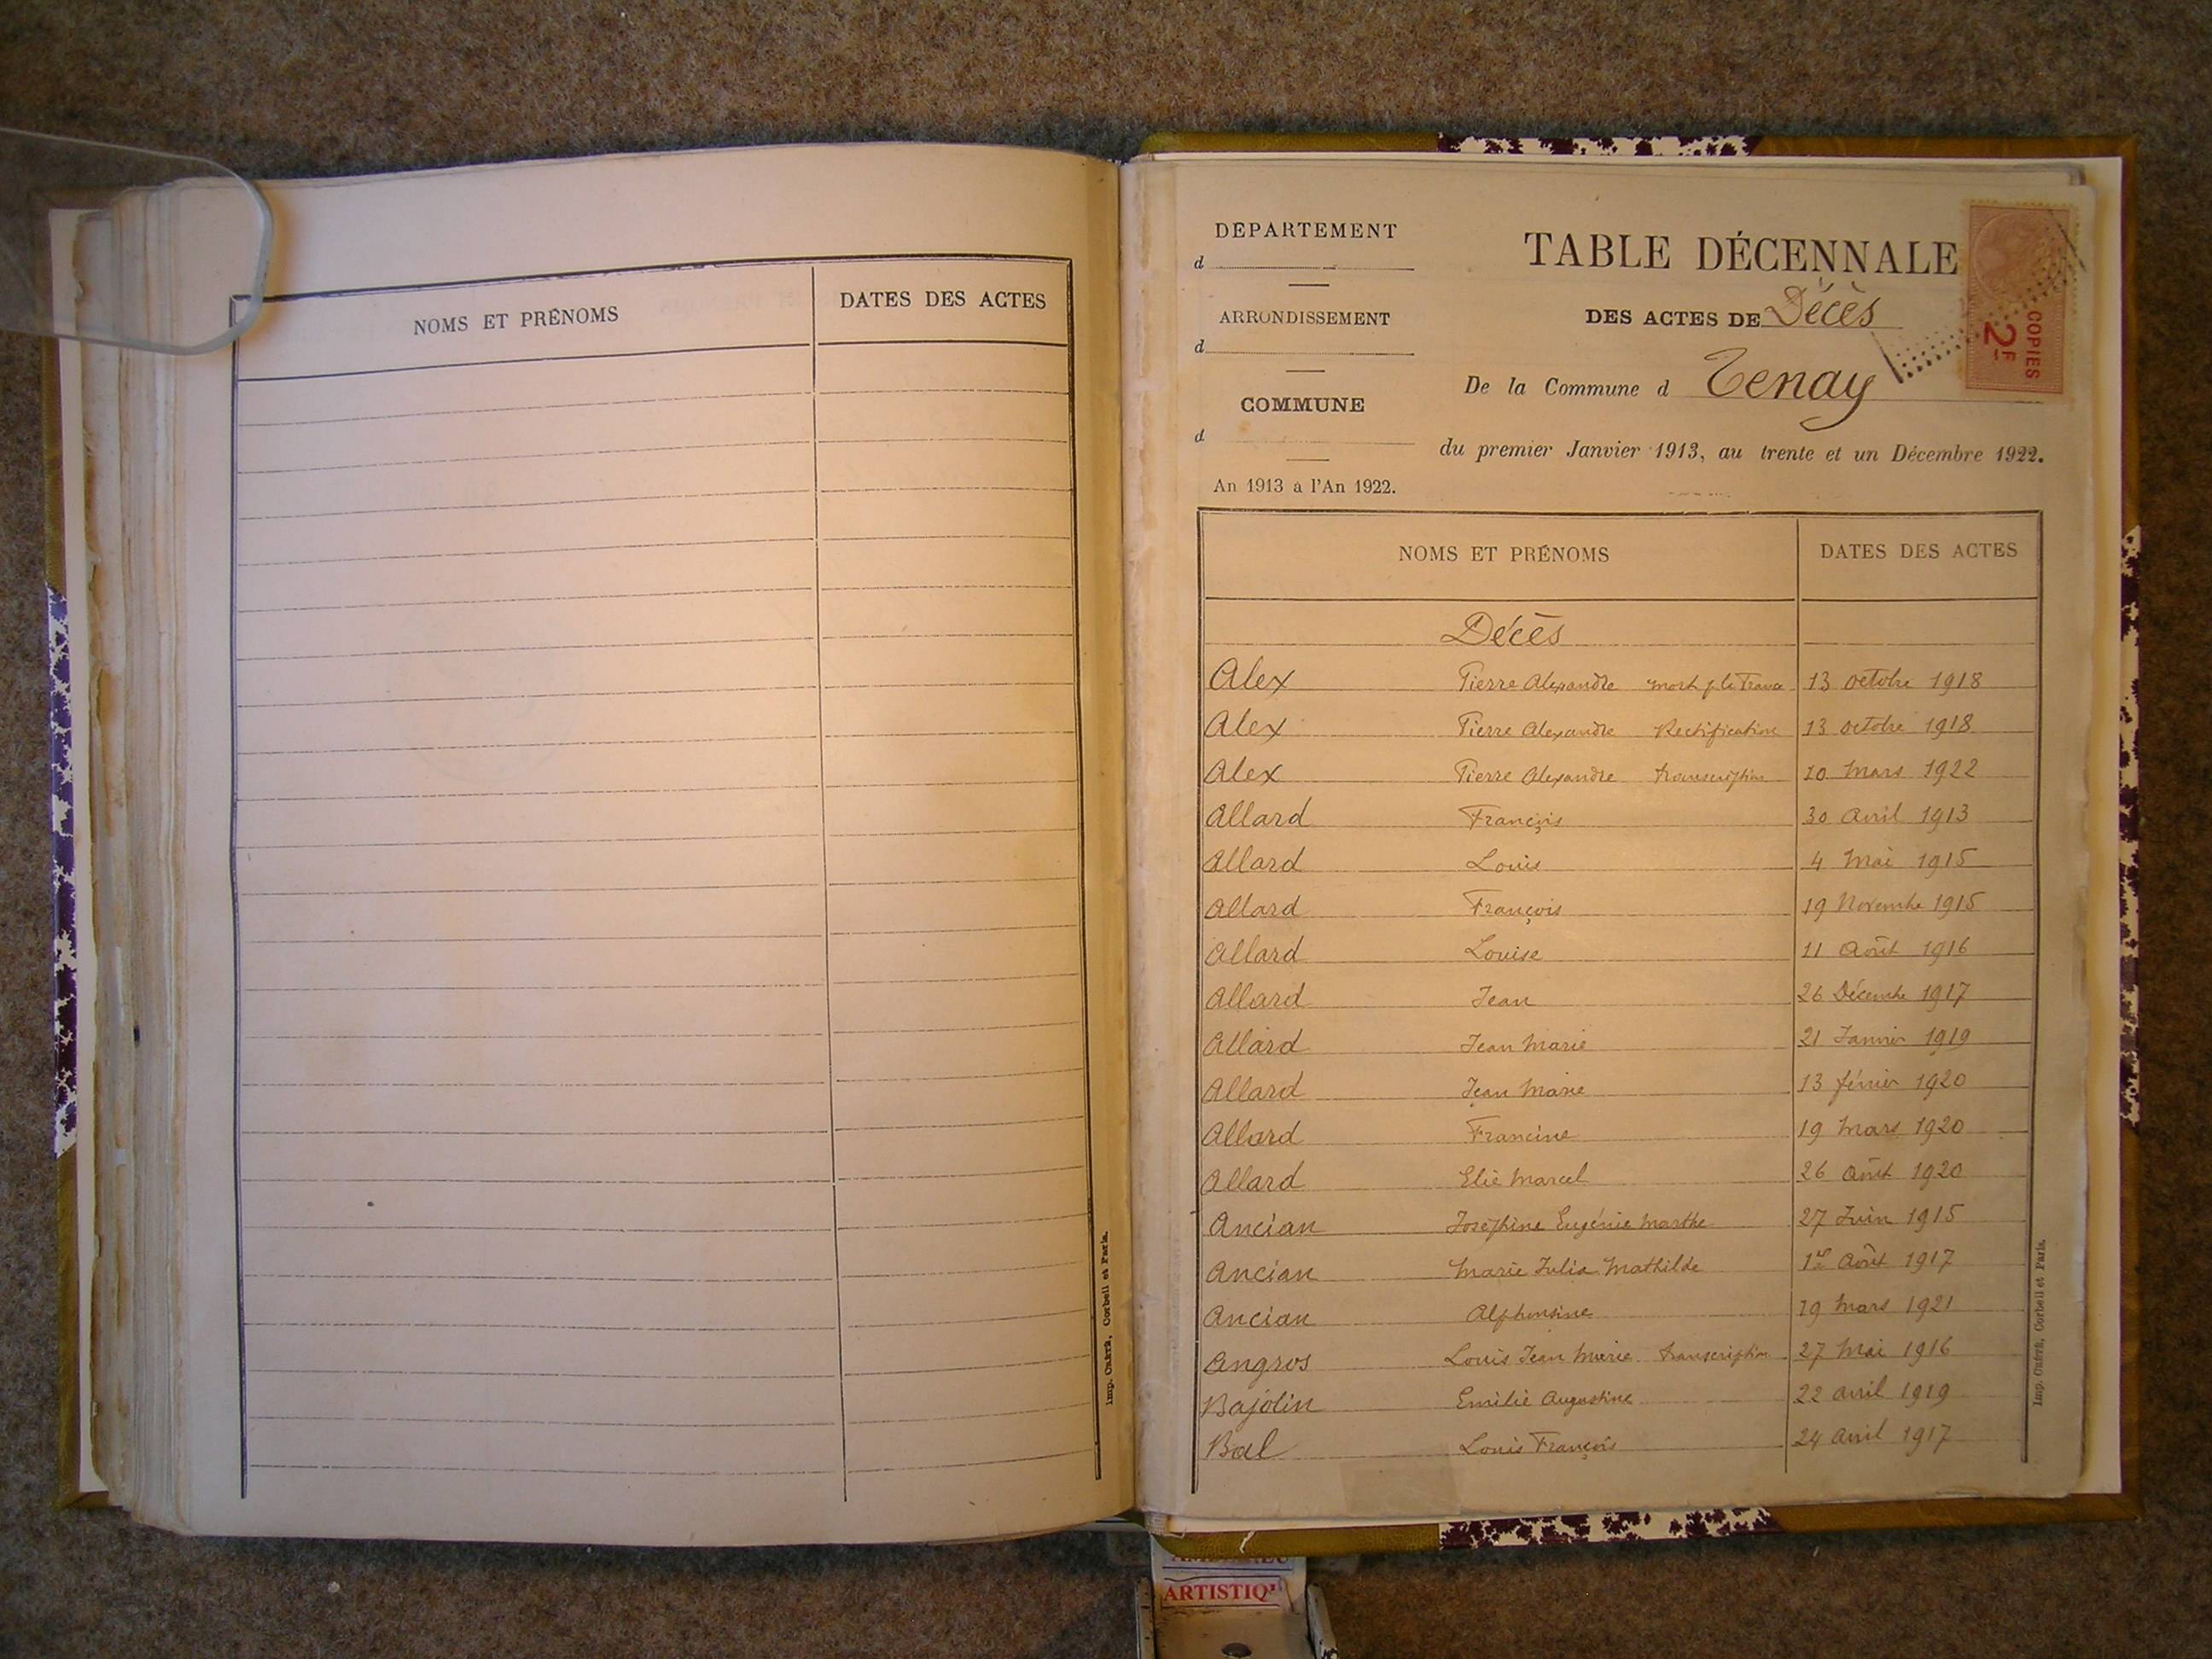 NOMS ET PRÉNOMS
DATES DES ACTES
Imp. Crété, Corbeil et Paris.
DÉPARTEMENT
d
ARRONDISSEMENT
d
COMMUNE
d
An 1913 à l'An 1922.
TABLE DÉCENNALE
DES ACTES DE Décès
De la Commune d Tenay
du premier Janvier 1913, au trente et un Décembre 1922.
COPIES
2F
NOMS ET PRÉNOMS DATES DES ACTES
Décès
Alex Pierre Alexandre mort p. la France 13 octobre 1918
Alex Pierre Alexandre Rectification 13 octobre 1918
Alex Pierre Alexandre transcription 10 Mars 1922
Allard François 30 Avril 1913
Allard Louis 4 Mai 1915
Allard François 19 Novembre 1915
Allard Louise 11 Août 1916
Allard Jean 26 Décembre 1917
Allard Jean Marie 21 Janvier 1919
Allard Jean Marie 13 février 1920
Allard Francine 19 Mars 1920
Allard Elie Marcel 26 Août 1920
Ancian Joséphine Eugénie Marthe 27 Juin 1915
Ancian Marie Julia Mathilde 1er Août 1917
Ancian Alphonsine 19 Mars 1921
Angros Louis Jean Marie transcription 27 Mai 1916
Bajolin Emilie Augustine 22 avril 1919
Bal Louis François 24 Avril 1917
Imp. Crété, Corbeil et Paris.
ARTISTIQ